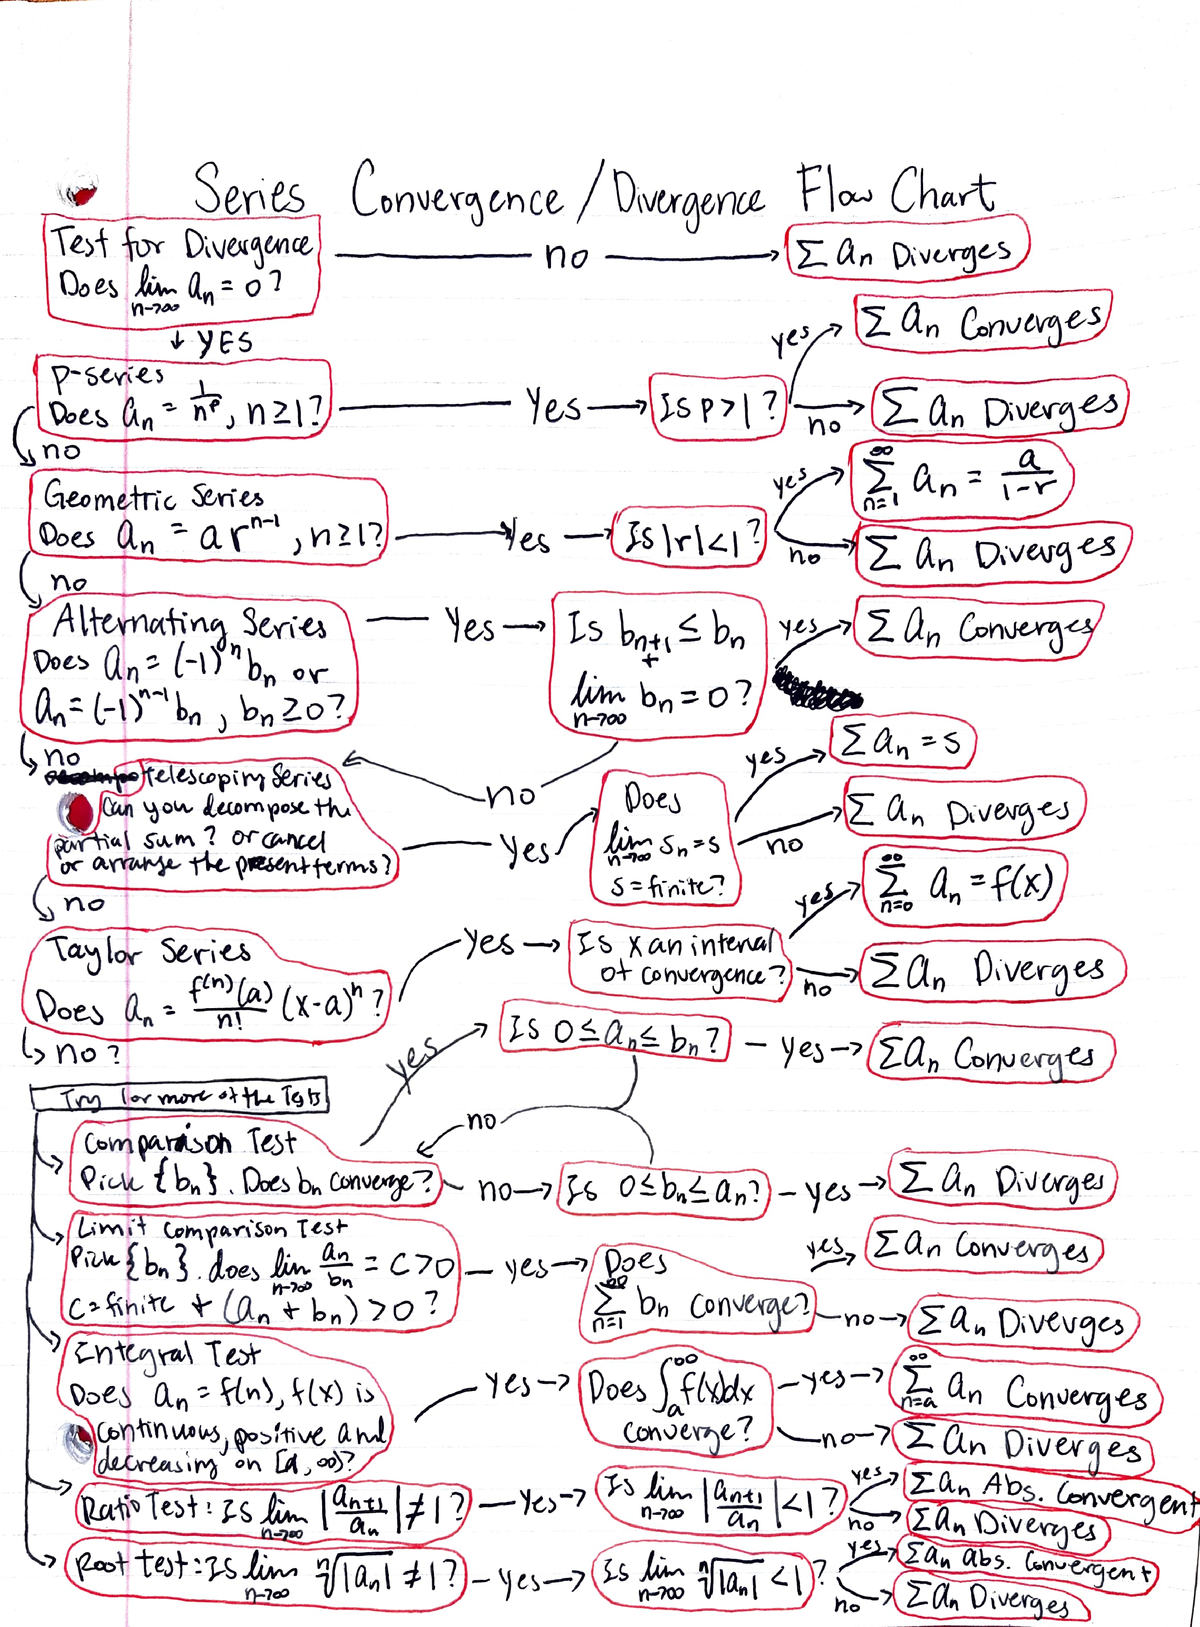 Series Convergence / Divergence Flow Chart
Test for Divergence
Does lim n→∞ aₙ = 0?
no
Σ aₙ Diverges
↓ YES
P-series
Does aₙ = 1/nᵖ, n ≥ 1?
Yes
Is P > 1?
yes
Σ aₙ Converges
no
Σ aₙ Diverges
no
Geometric Series
Does aₙ = arⁿ⁻¹, n ≥ 1?
Yes
Is |r| < 1?
yes
∞ Σ n=1 aₙ = a/1-r
no
Σ aₙ Diverges
no
Alternating Series
Does aₙ = (-1)ⁿ bₙ or
aₙ = (-1)ⁿ⁻¹ bₙ, bₙ ≥ 0?
Yes
Is bₙ₊₁ ≤ bₙ
+
lim n→∞ bₙ = 0?
yes
Σ aₙ Converges
no
no
telescoping Series
Can you decompose the
partial sum? or cancel
or arrange the present terms?
Yes
Does
lim n→∞ sₙ = s
s = finite?
yes
Σ aₙ = s
no
Σ aₙ Diverges
no
Taylor Series
Does aₙ = f⁽ⁿ⁾(a)/n! (x-a)ⁿ?
Yes
Is x an interval
of convergence?
yes
∞ Σ n=0 aₙ = f(x)
no
Σ aₙ Diverges
no?
Try 1 or more of the Tests
Comparison Test
Pick {bₙ}. Does bₙ converge?
yes
Is 0 ≤ aₙ ≤ bₙ?
yes
Σ aₙ Converges
no
no
Is 0 ≤ bₙ ≤ aₙ?
yes
Σ aₙ Diverges
Limit Comparison Test
Pick {bₙ}. does lim n→∞ aₙ/bₙ = C > 0
C = finite + (aₙ + bₙ) > 0?
yes
Does
∞ Σ n=1 bₙ converge?
yes
Σ aₙ Converges
no
Σ aₙ Diverges
Integral Test
Does aₙ = f(n), f(x) is
continuous, positive and
decreasing on [a, ∞)?
yes
Does ∫ₐ^∞ f(x)dx
converge?
yes
∞ Σ n=a aₙ Converges
no
Σ aₙ Diverges
Ratio Test: Is lim n→∞ |aₙ₊₁/aₙ| ≠ 1?
Yes
Is lim n→∞ |aₙ₊₁/aₙ| < 1?
yes
Σ aₙ Abs. Convergent
no
Σ aₙ Diverges
Root test: Is lim n→∞ ⁿ√|aₙ| ≠ 1?
yes
Is lim n→∞ ⁿ√|aₙ| < 1?
yes
Σ aₙ abs. Convergent
no
Σ aₙ Diverges